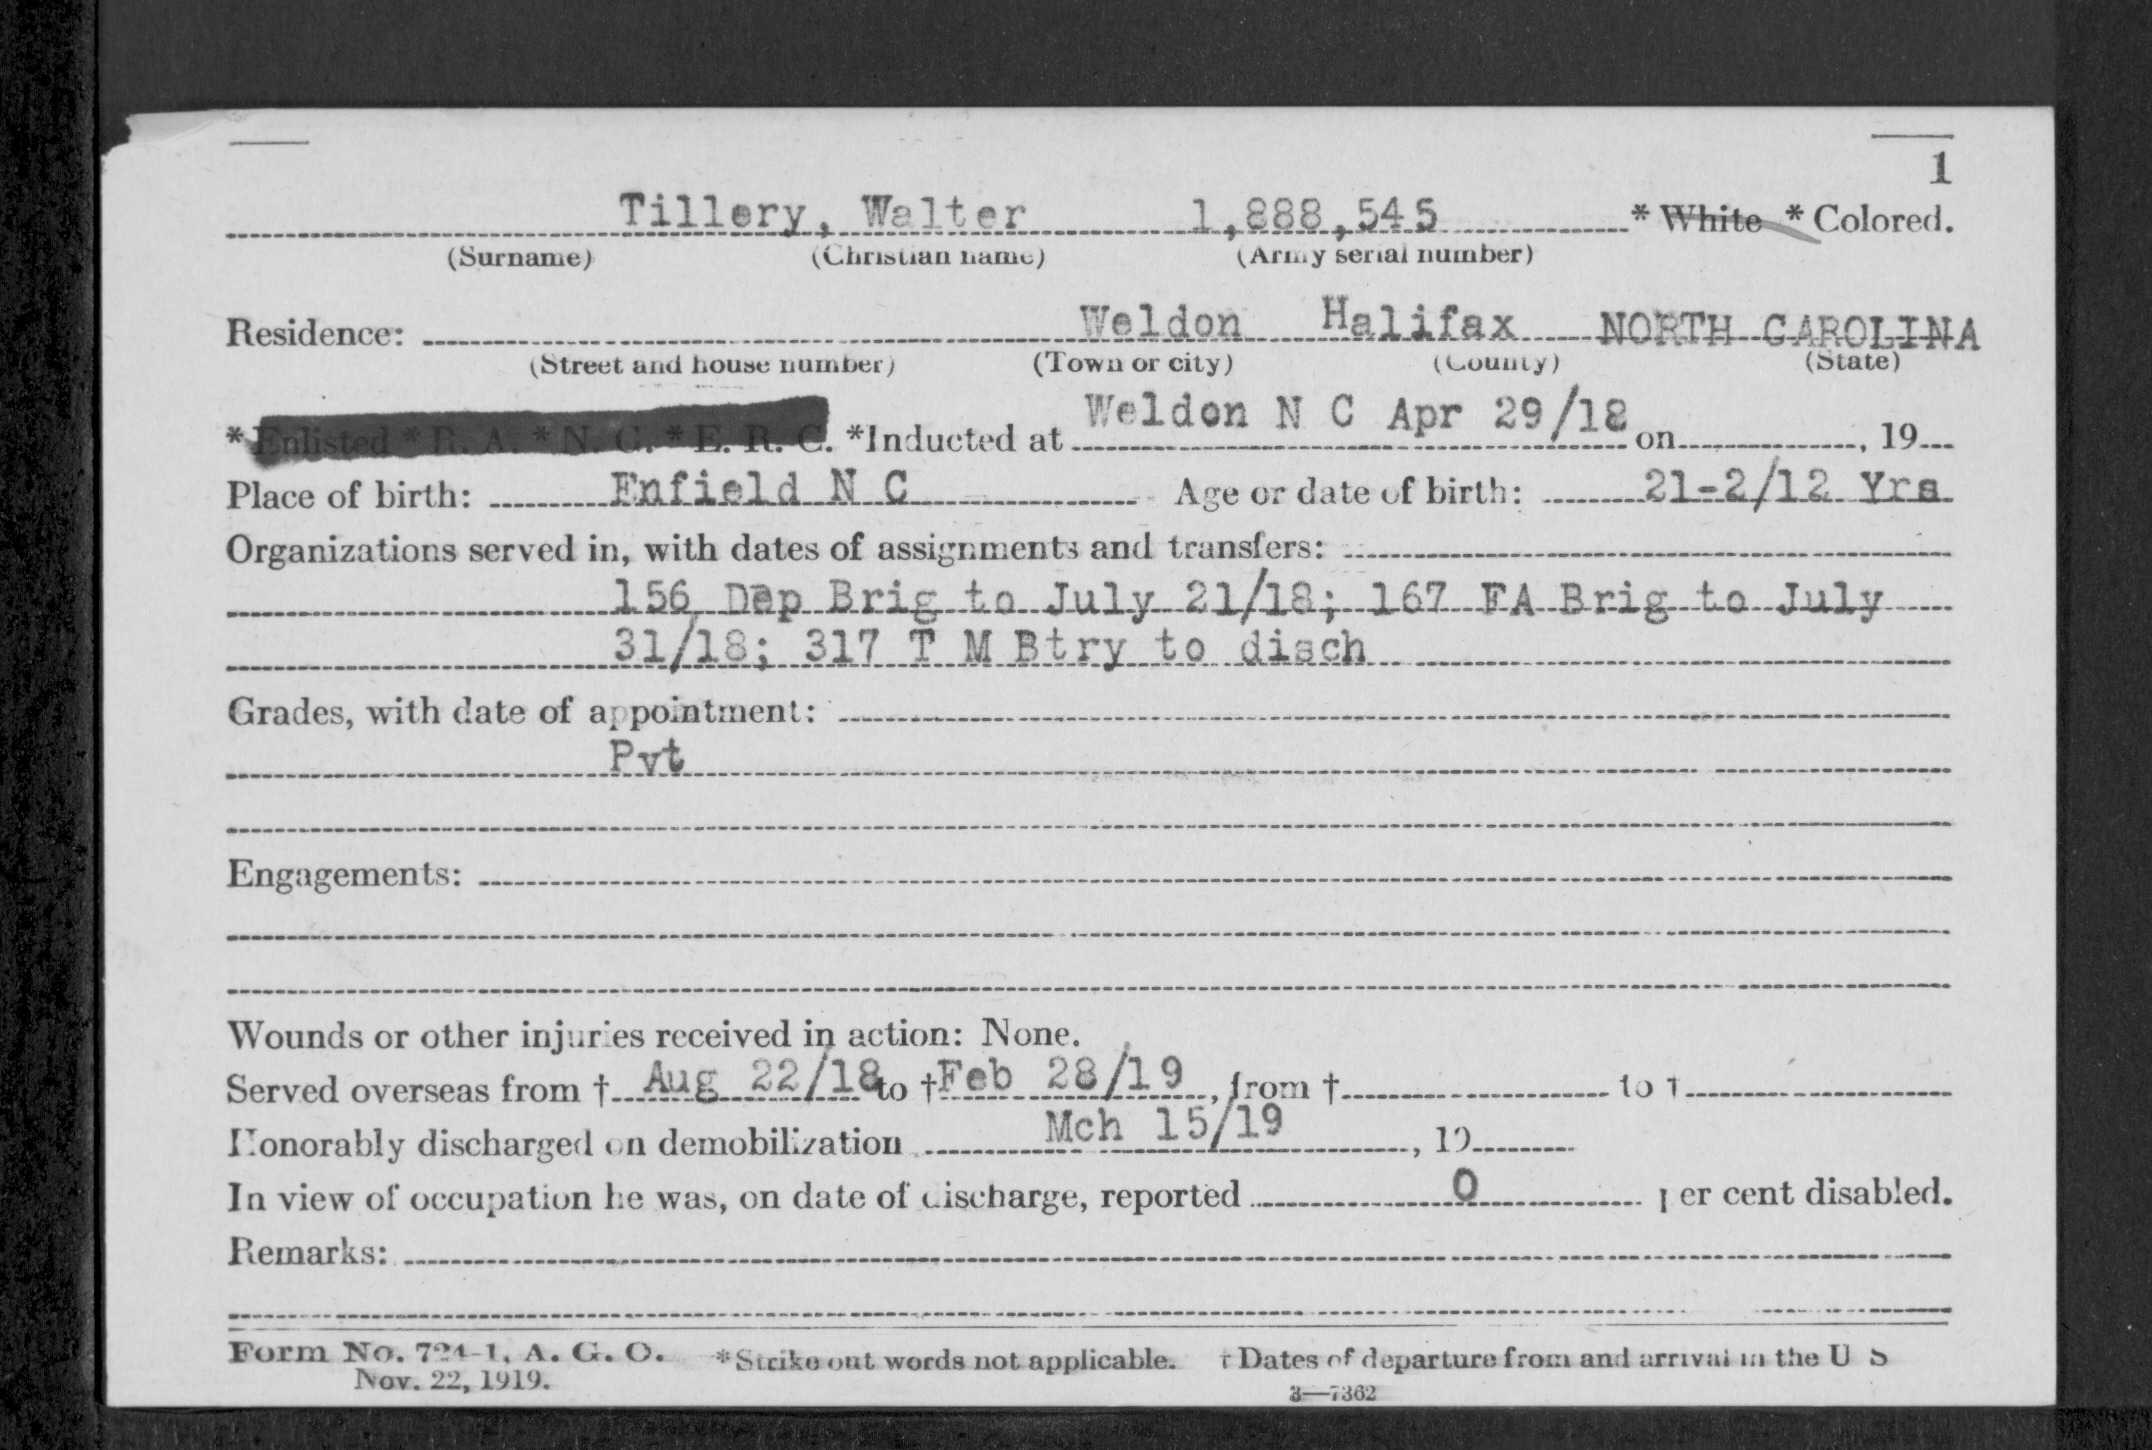 1
Tillery, Walter 1,888,545 * White * Colored.
(Surname) (Christian name) (Army serial number)
Residence: Weldon Halifax NORTH CAROLINA
(Street and house number) (Town or city) (County) (State)
* Enlisted * R. A. * N. G. * E. R. C. *Inducted at Weldon N C Apr 29/18 on , 19
Place of birth: Enfield N C Age or date of birth: 21-2/12 Yrs
Organizations served in, with dates of assignments and transfers:
156 Dep Brig to July 21/18; 167 FA Brig to July
31/18; 317 T M Btry to disch
Grades, with date of appointment:
Pvt
Engagements:
Wounds or other injuries received in action: None.
Served overseas from † Aug 22/18 to † Feb 28/19, from † to †
Honorably discharged on demobilization Mch 15/19, 19
In view of occupation he was, on date of discharge, reported 0 per cent disabled.
Remarks:
Form No. 724-1, A. G. O. *Strike out words not applicable. † Dates of departure from and arrival in the U S
Nov. 22, 1919.
3—7362